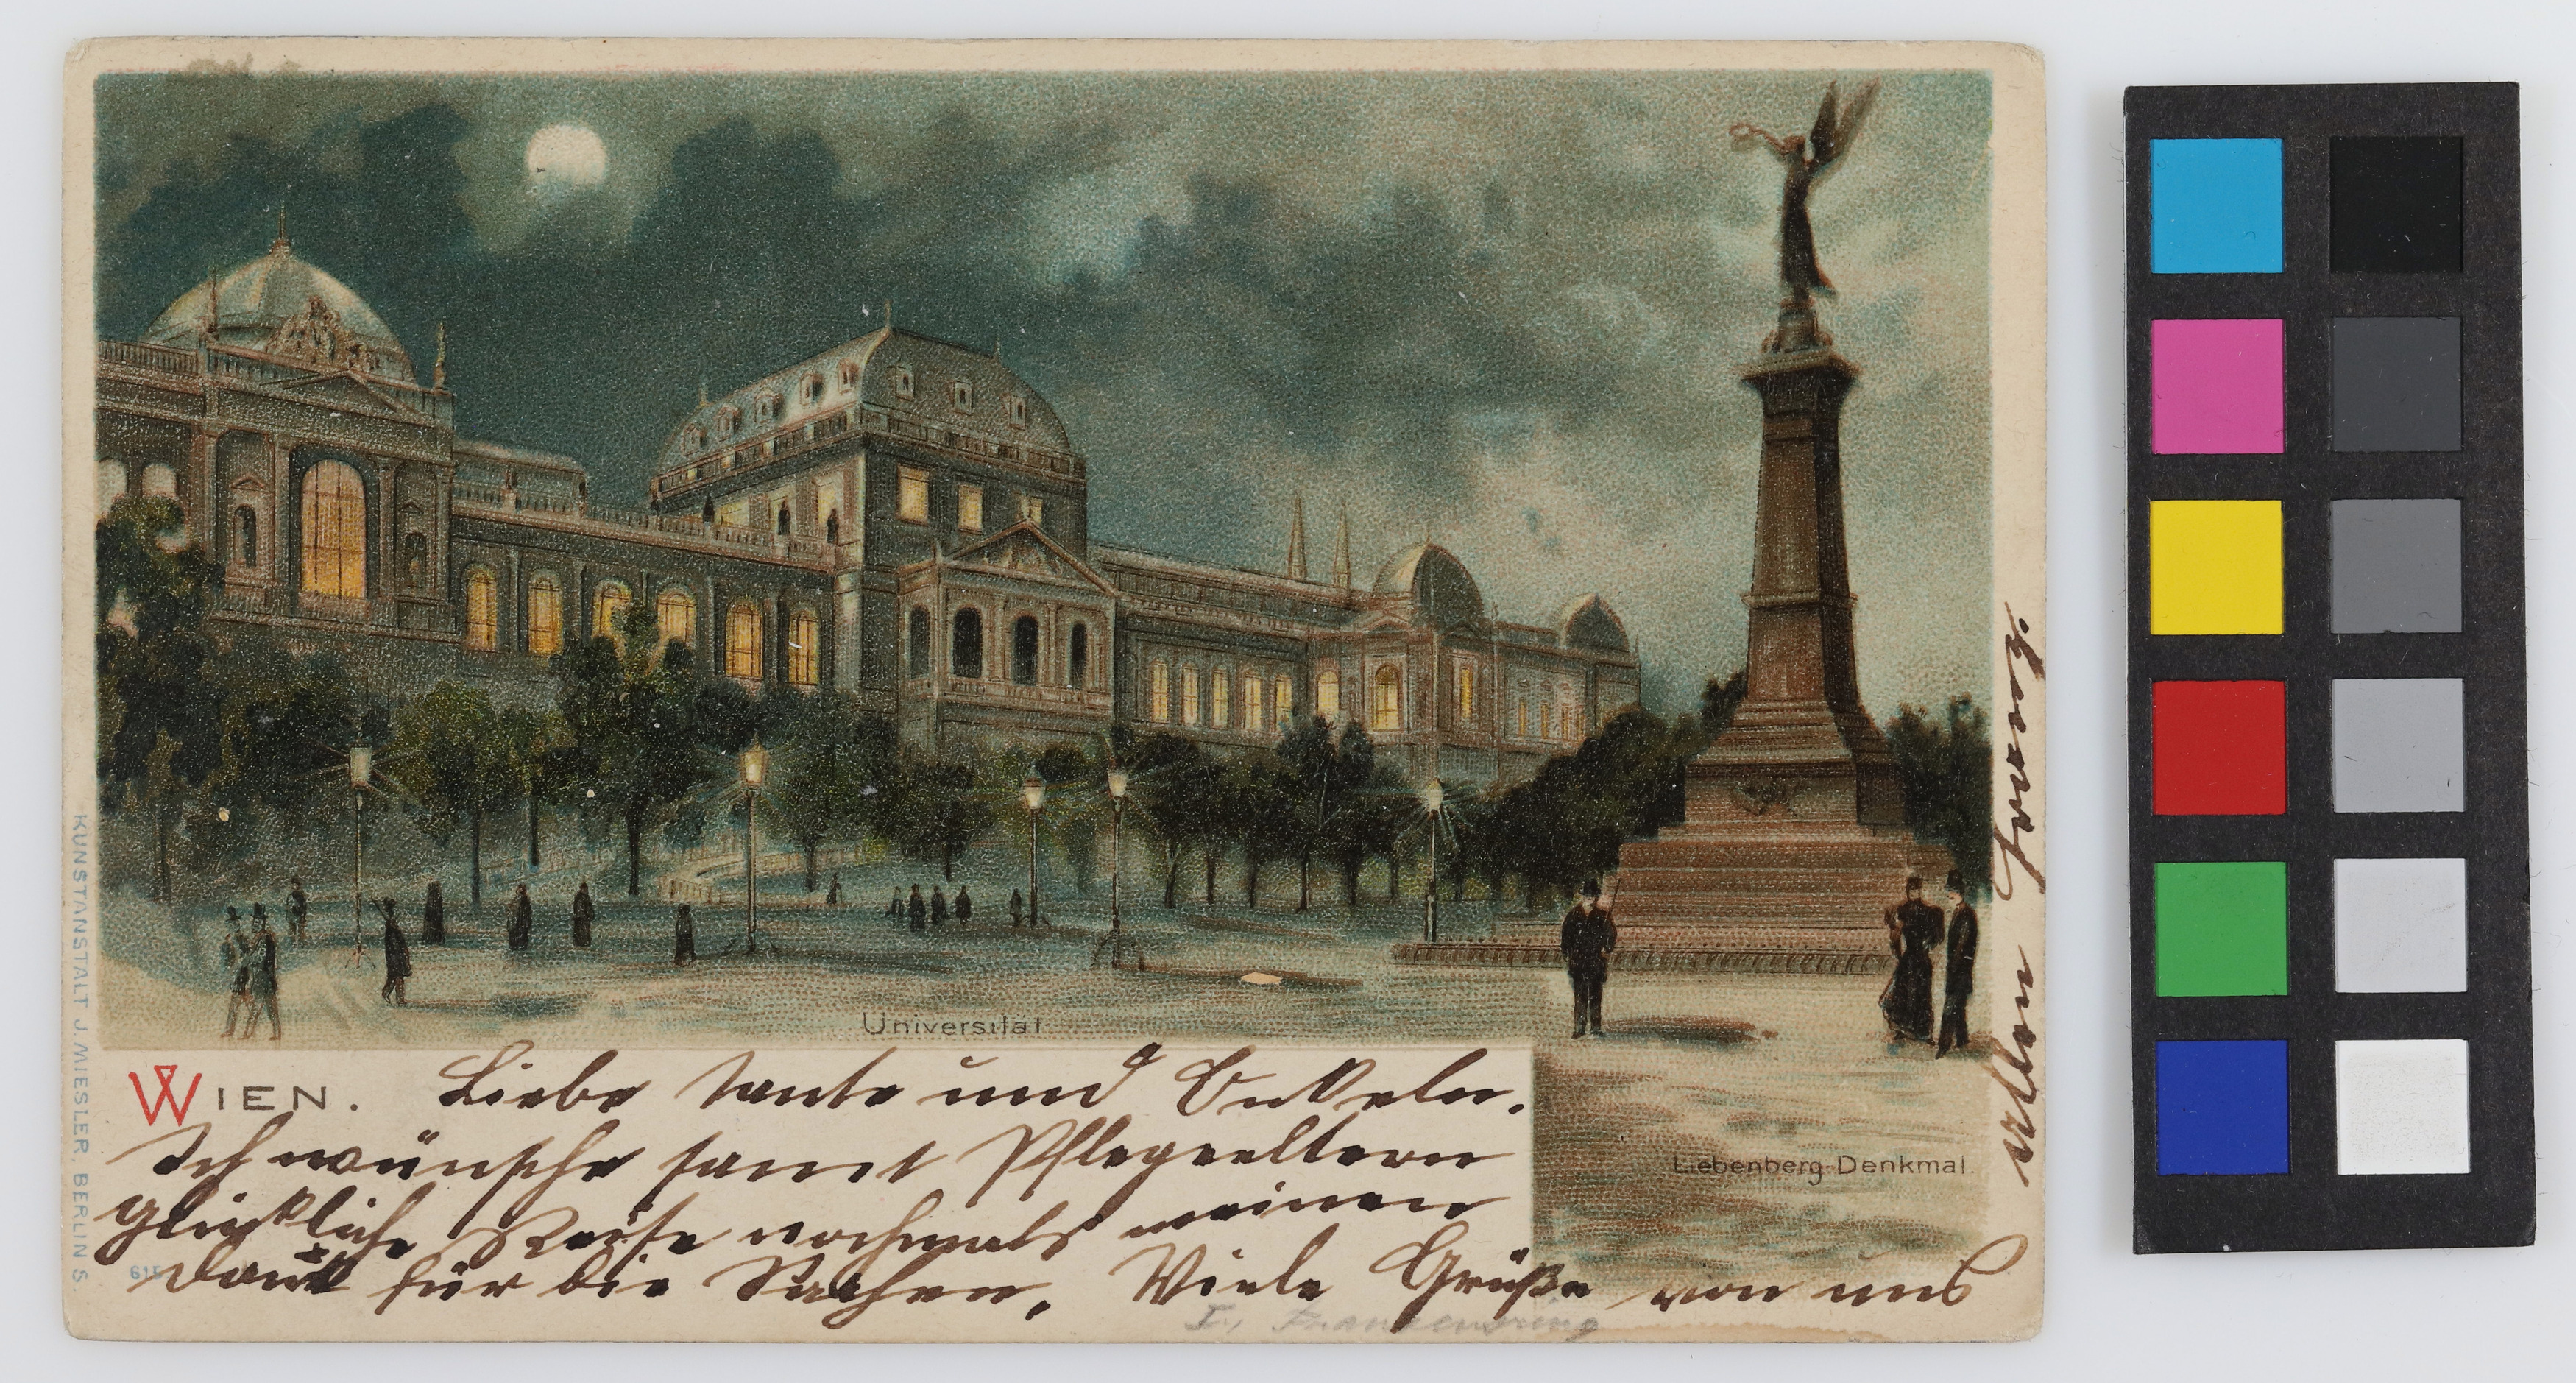 Universität
WIEN.
Liebe Tante und Onkeln.
Ich wünsche samt Pflegeeltern
glückliche Reise nochmals meinen
Dank für die Sachen. Viele Grüße von uns
allen Franz.
Liebenberg-Denkmal.
KUNSTANSTALT J. MIESLER, BERLIN S.
615
I., Franzensring